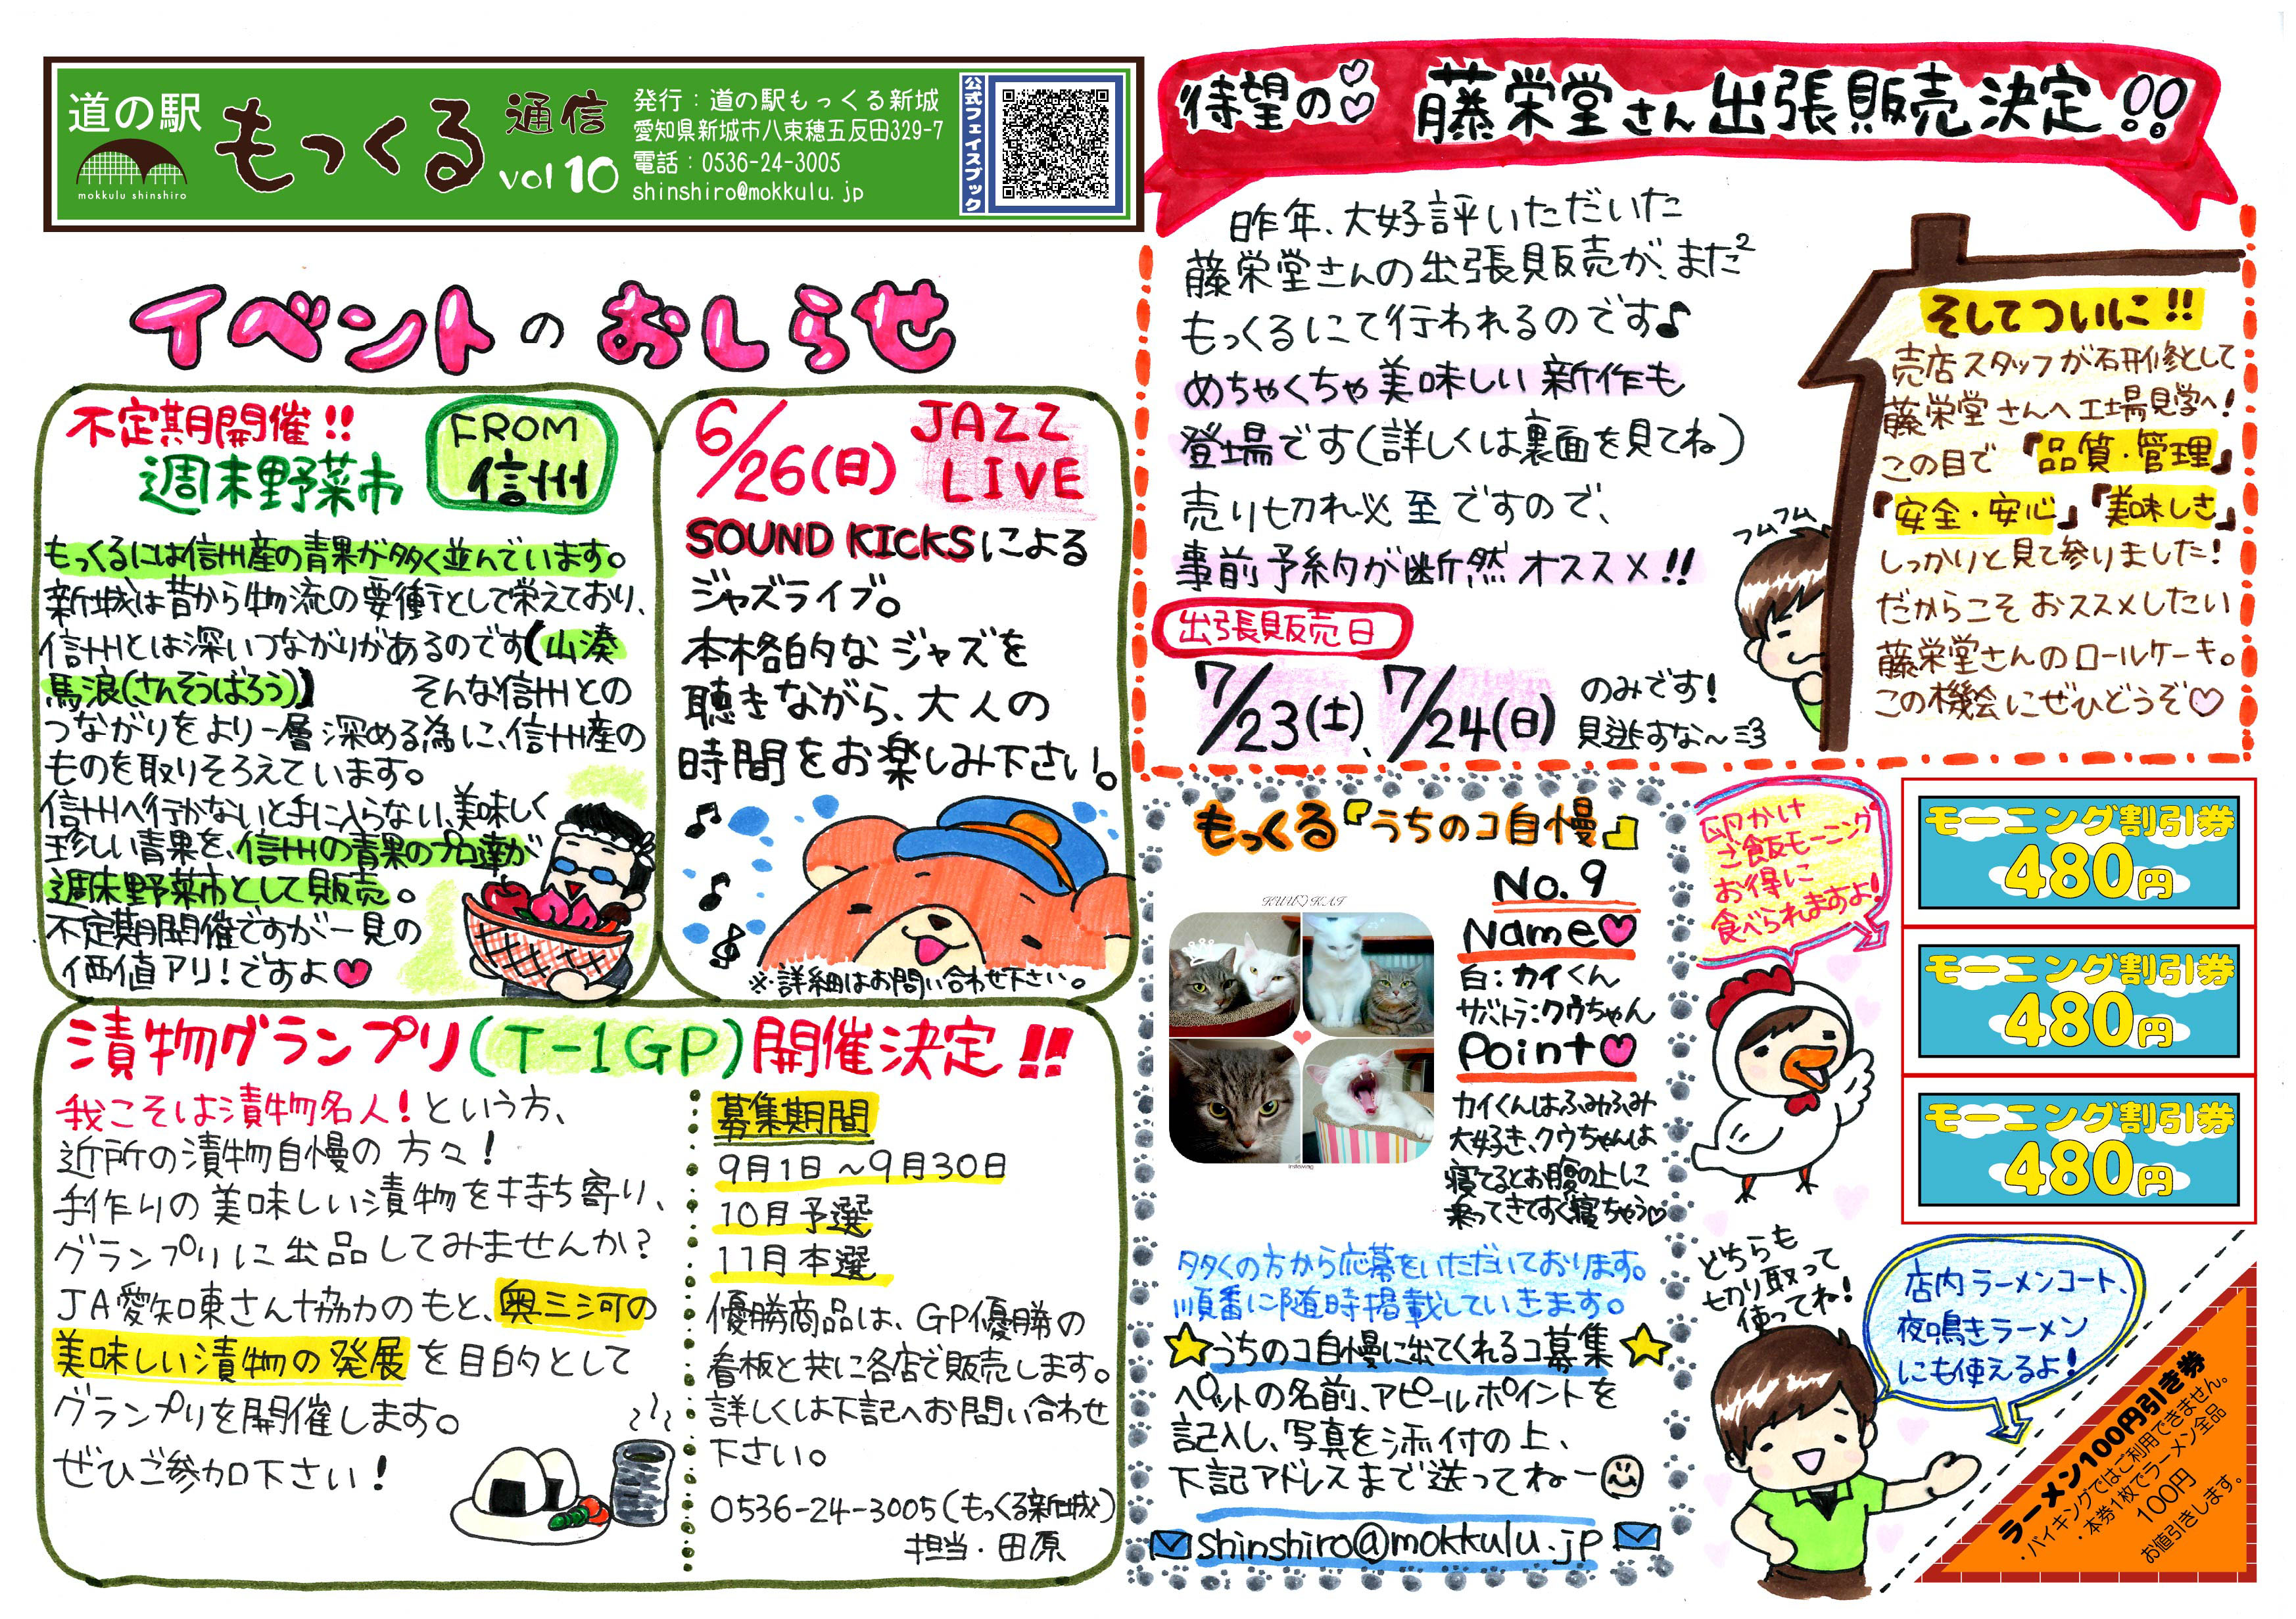 道の駅
mokkulu shinshiro
もっくる
通信
vol 10
発行：道の駅もっくる新城
愛知県新城市八束穂五反田329-7
電話：0536-24-3005
shinshiro@mokkulu.jp
公式フェイスブック
イベントのおしらせ
不定期開催!!
週末野菜市
FROM
信州
もっくるには信州産の青果が多く並んでいます。
新城は昔から物流の要衝として栄えており、
信州とは深いつながりがあるのです(山湊
馬浪(さんそうばろう)) そんな信州との
つながりをより一層深める為に、信州産の
ものを取りそろえています。
信州へ行かないと手に入らない、美味しく
珍しい青果を、信州の青果のプロ達が
週末野菜市として販売。
不定期開催ですが一見の
価値アリ!ですよ♥
6/26(日)
JAZZ
LIVE
SOUND KICKSによる
ジャズライブ。
本格的なジャズを
聴きながら、大人の
時間をお楽しみ下さい。
※詳細はお問い合わせ下さい。
漬物グランプリ(T-1GP)開催決定!!
我こそは漬物名人!という方、
近所の漬物自慢の方々!
手作りの美味しい漬物を持ち寄り、
グランプリに出品してみませんか?
JA愛知東さん協力のもと、奥三河の
美味しい漬物の発展を目的として
グランプリを開催します。
ぜひご参加下さい!
募集期間
9月1日～9月30日
10月予選
11月本選
優勝商品は、GP優勝の
看板と共に各店で販売します。
詳しくは下記へお問い合わせ
下さい。
0536-24-3005(もっくる新城)
担当・田原
待望の♡ 藤栄堂さん出張販売決定!!
昨年、大好評いただいた
藤栄堂さんの出張販売が、また2
もっくるにて行われるのです♪
めちゃくちゃ美味しい新作も
登場です(詳しくは裏面を見てね)
売り切れ必至ですので、
事前予約が断然オススメ!!
出張販売日
7/23(土)、7/24(日)
のみです!
見逃すな～
そしてついに!!
売店スタッフが研修として
藤栄堂さんへ工場見学へ!
この目で『品質・管理』
『安全・安心』『美味しさ』
しっかりと見て参りました!
だからこそおススメしたい
藤栄堂さんのロールケーキ。
この機会にぜひどうぞ♡
フムフム
もっくる『うちのコ自慢』
KUU♡KAI
No.9
Name♥
白：カイくん
サバトラ：クウちゃん
Point♥
カイくんはふみふみ
大好き、クウちゃんは
寝てるとお腹の上に
乗ってきてすぐ寝ちゃう♡
多くの方から応募をいただいております。
順番に随時掲載していきます。
★うちのコ自慢に出てくれるコ募集★
ペットの名前、アピールポイントを
記入し、写真を添付の上、
下記アドレスまで送ってねー
shinshiro@mokkulu.jp
卵かけ
ご飯モーニング
お得に
食べられますよ!
モーニング割引券
480円
モーニング割引券
480円
モーニング割引券
480円
どちらも
切り取って
使ってね!
店内ラーメンコート、
夜鳴きラーメン
にも使えるよ!
ラーメン100円引き券
・バイキングではご利用できません。
・本券1枚でラーメン全品
100円
お値引きします。